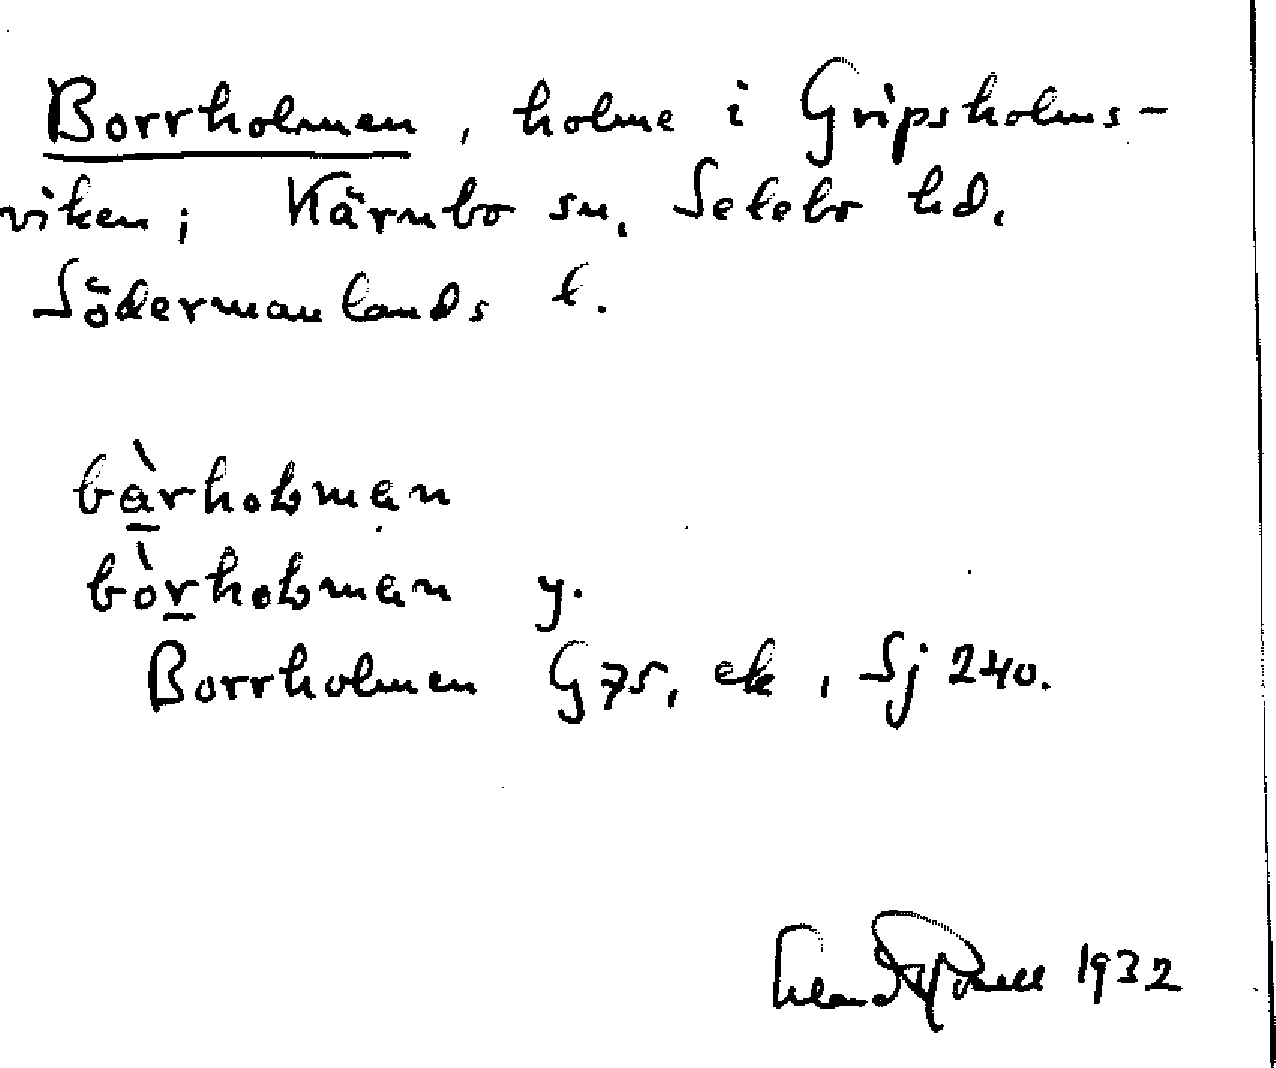 Borrholmen, holme i Gripsholms-
viken; Kärnbo sn, Selebo hd,
Södermanlands l.
bàrholmən
bòrholmən y.
Borrholmen G75, ek, Sj 240.
1932